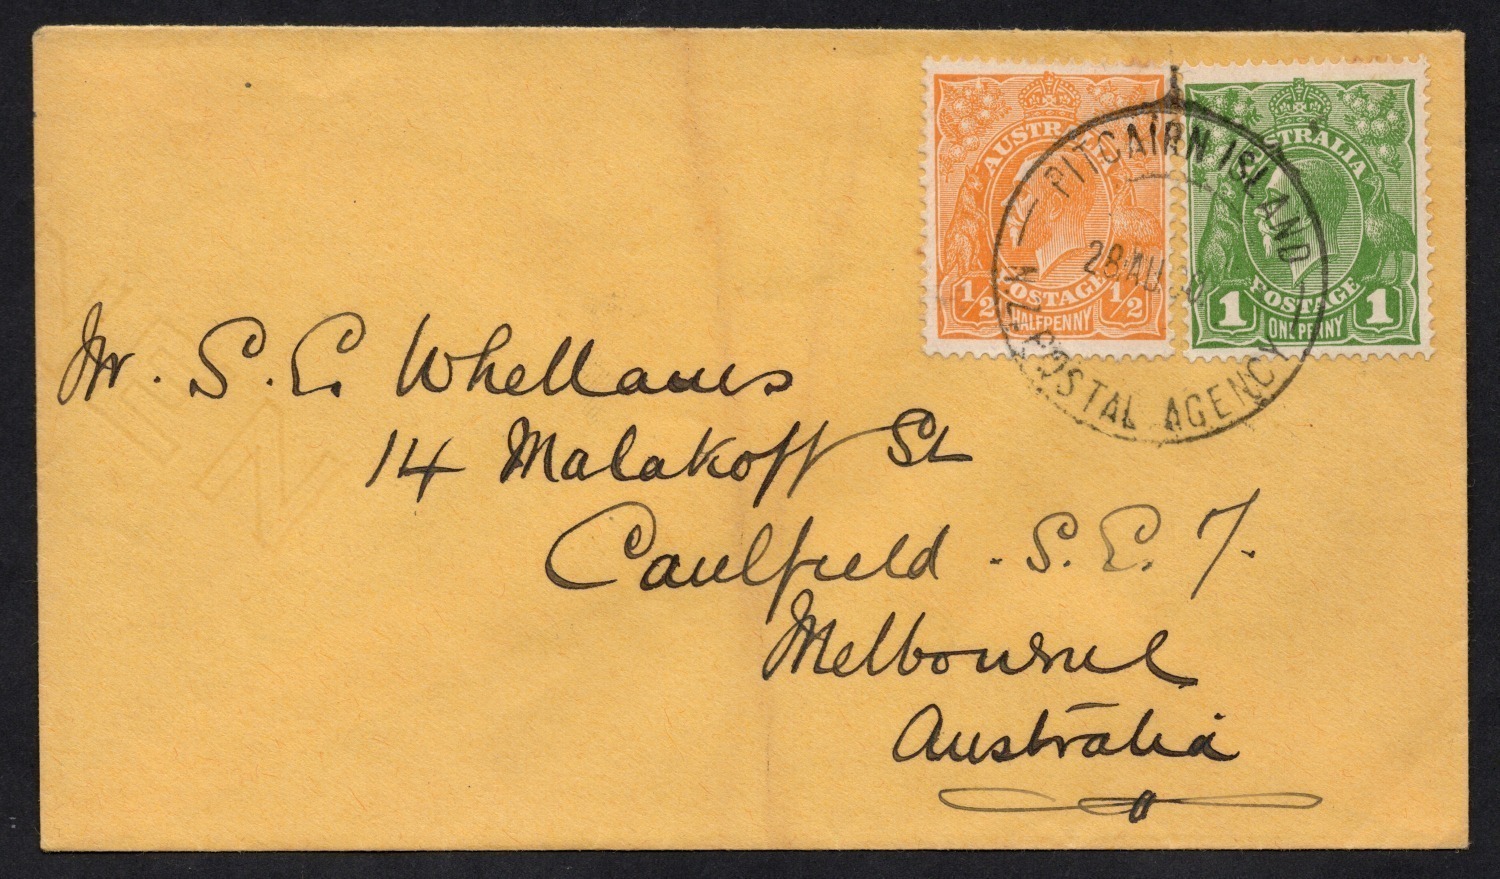 AUSTRALIA
½ POSTAGE ½
HALFPENNY
AUSTRALIA
1 POSTAGE 1
ONE PENNY
PITCAIRN ISLAND
28 AU
N.Z. POSTAL AGENCY
Mr. S. E. Whellams
14 Malakoff St
Caulfield. S. E. 7.
Melbourne
Australia